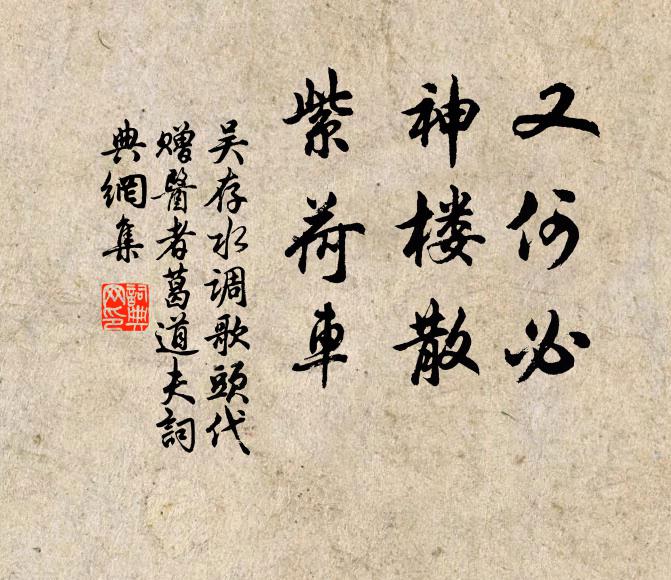 又何必
神楼散
紫荷車
吴存水调歌頭代
赠醫者葛道夫詞
典網集
詞典网印